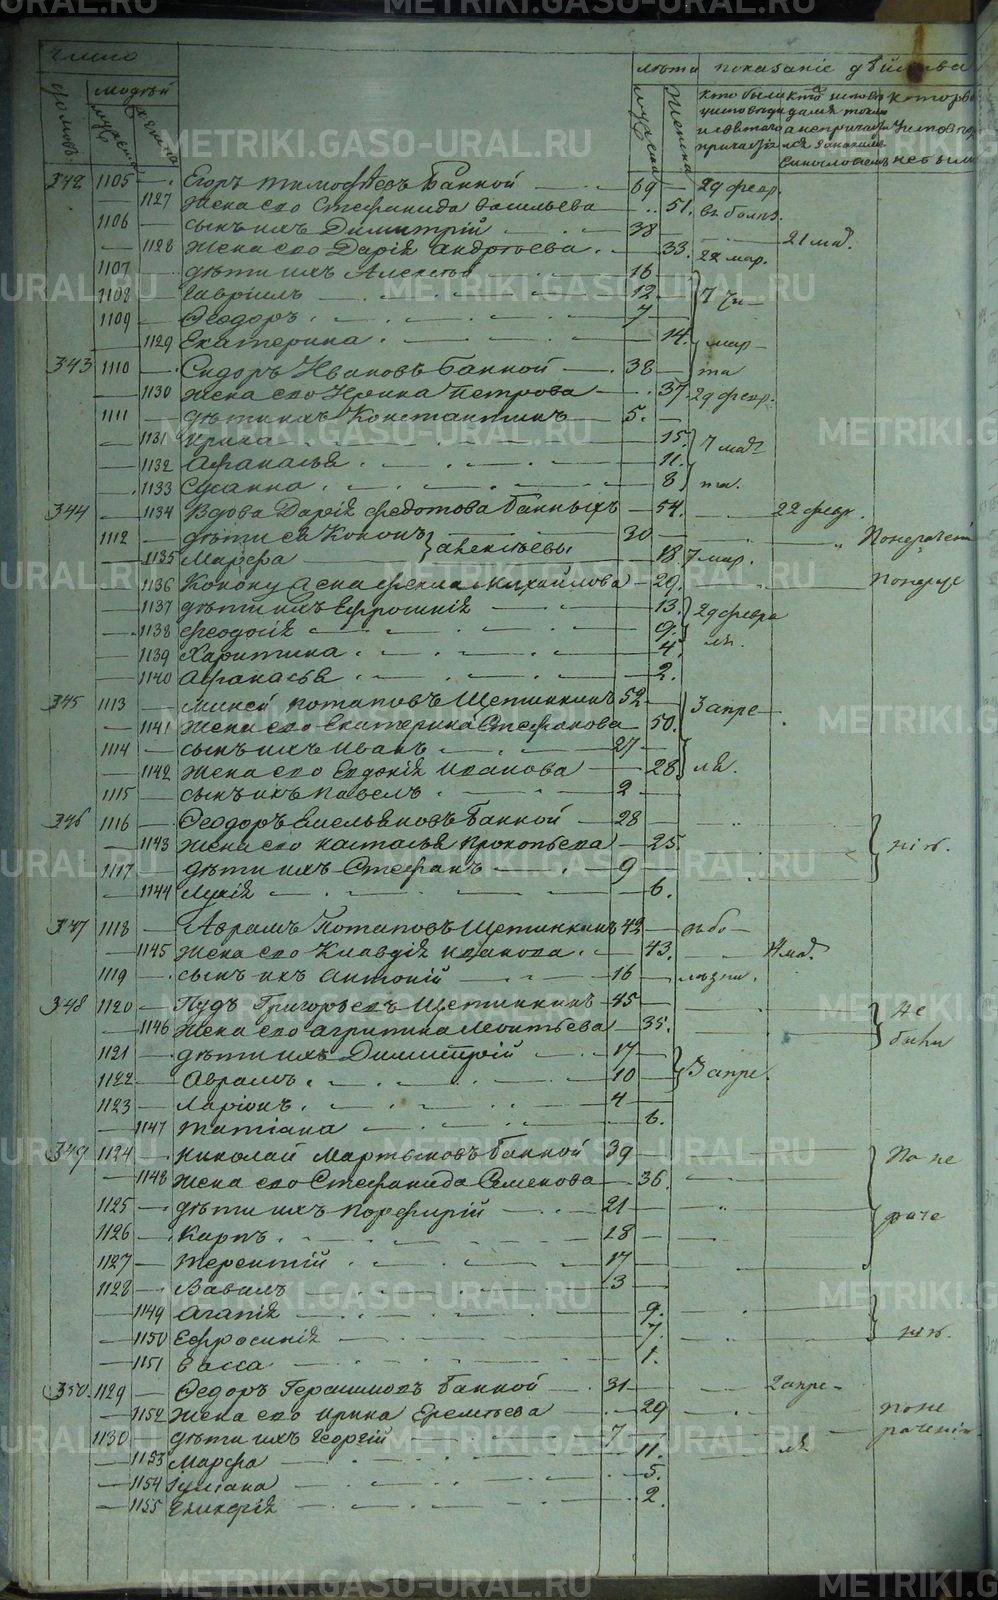 Число
домовъ
людей
мужеска
женска
лѣта
показаніе дѣйства
мужеска
женска
342 1105 Егоръ Тимофѣевъ Банной 69 29 февр.
1127 Жена его Стефанида Васильева 51. въ болѣз.
1106 сынъ ихъ Димитрій 38 21 мар.
1128 Жена его Дарія Андреева 33. 22 мар.
1107 дѣти ихъ Алексѣй 16
1108 Гавріилъ 12 7 чи
1109 Ѳеодоръ 7
1129 Екатерина 14. мар
343 1110 Сидоръ Ивановъ Банной 38 та
1130 Жена его Ирина Петрова 37 29 февр.
1111 дѣти ихъ Константинъ 5.
1131 Ирина 15. 7 мар
1132 Афанасья 11.
1133 Сусанна 8 та.
344 1134 Вдова Дарія Федотова Банныхъ 54. 22 февр.
1112 дѣти ея Кононъ 30
1135 Марфа Алексѣевы 18 7 мар.
1136 Конону жена Фекла Михайлова 29.
1137 дѣти ихъ Ефросинія 13. 29 февра
1138 Феодосія 9. ля.
1139 Харитина 4.
1140 Афанасья 2.
345 1113 Потаповъ Щетинкинъ 52 3 апре
1141 Жена его Екатерина Стефанова 50.
1114 сынъ ихъ Иванъ 27
1142 Жена его Евдокія Иванова 28 ля.
1115 сынъ ихъ Павелъ 2
346 1116 Ѳеодоръ Емельяновъ Банной 28
1143 Жена его Наталья Прокопьева 25. ніж.
1117 дѣти ихъ Стефанъ 9
1144 Лукія 6.
347 1118 Аврамъ Потаповъ Щетинкинъ 42 въ бо
1145 Жена его Клавдія Иванова 43. 4 мар.
1119 сынъ ихъ Антоній 16 лѣзни.
348 1120 Пудъ Григорьевъ Щетинкинъ 45 Не
1146 Жена его Агрипина Леонтьева 35. были
1121 дѣти ихъ Димитрій 17
1122 Аврамъ 10 3 апре.
1123 Ларіонъ 4
1147 Татіана 6.
349 1124 Николай Мартыновъ Банной 39 По не
1148 Жена его Стефанида Семенова 36.
1125 дѣти ихъ Порфирій 21 раче
1126 Карпъ 18
1127 Терентій 17
1128 Вавилъ 3
1149 Агапія 9.
1150 Ефросинія 7. нію.
1151 Васса 1.
350. 1129 Ѳедоръ Герасимовъ Банной 31 2 апре
1152 Жена его Ирина Еремеева 29 поне
1130 дѣти ихъ Георгій 7 раченію.
1153 Марфа 11. ля
1154 Іуліана 5.
1155 Гликерія 2.
METRIKI.GASO-URAL.RU